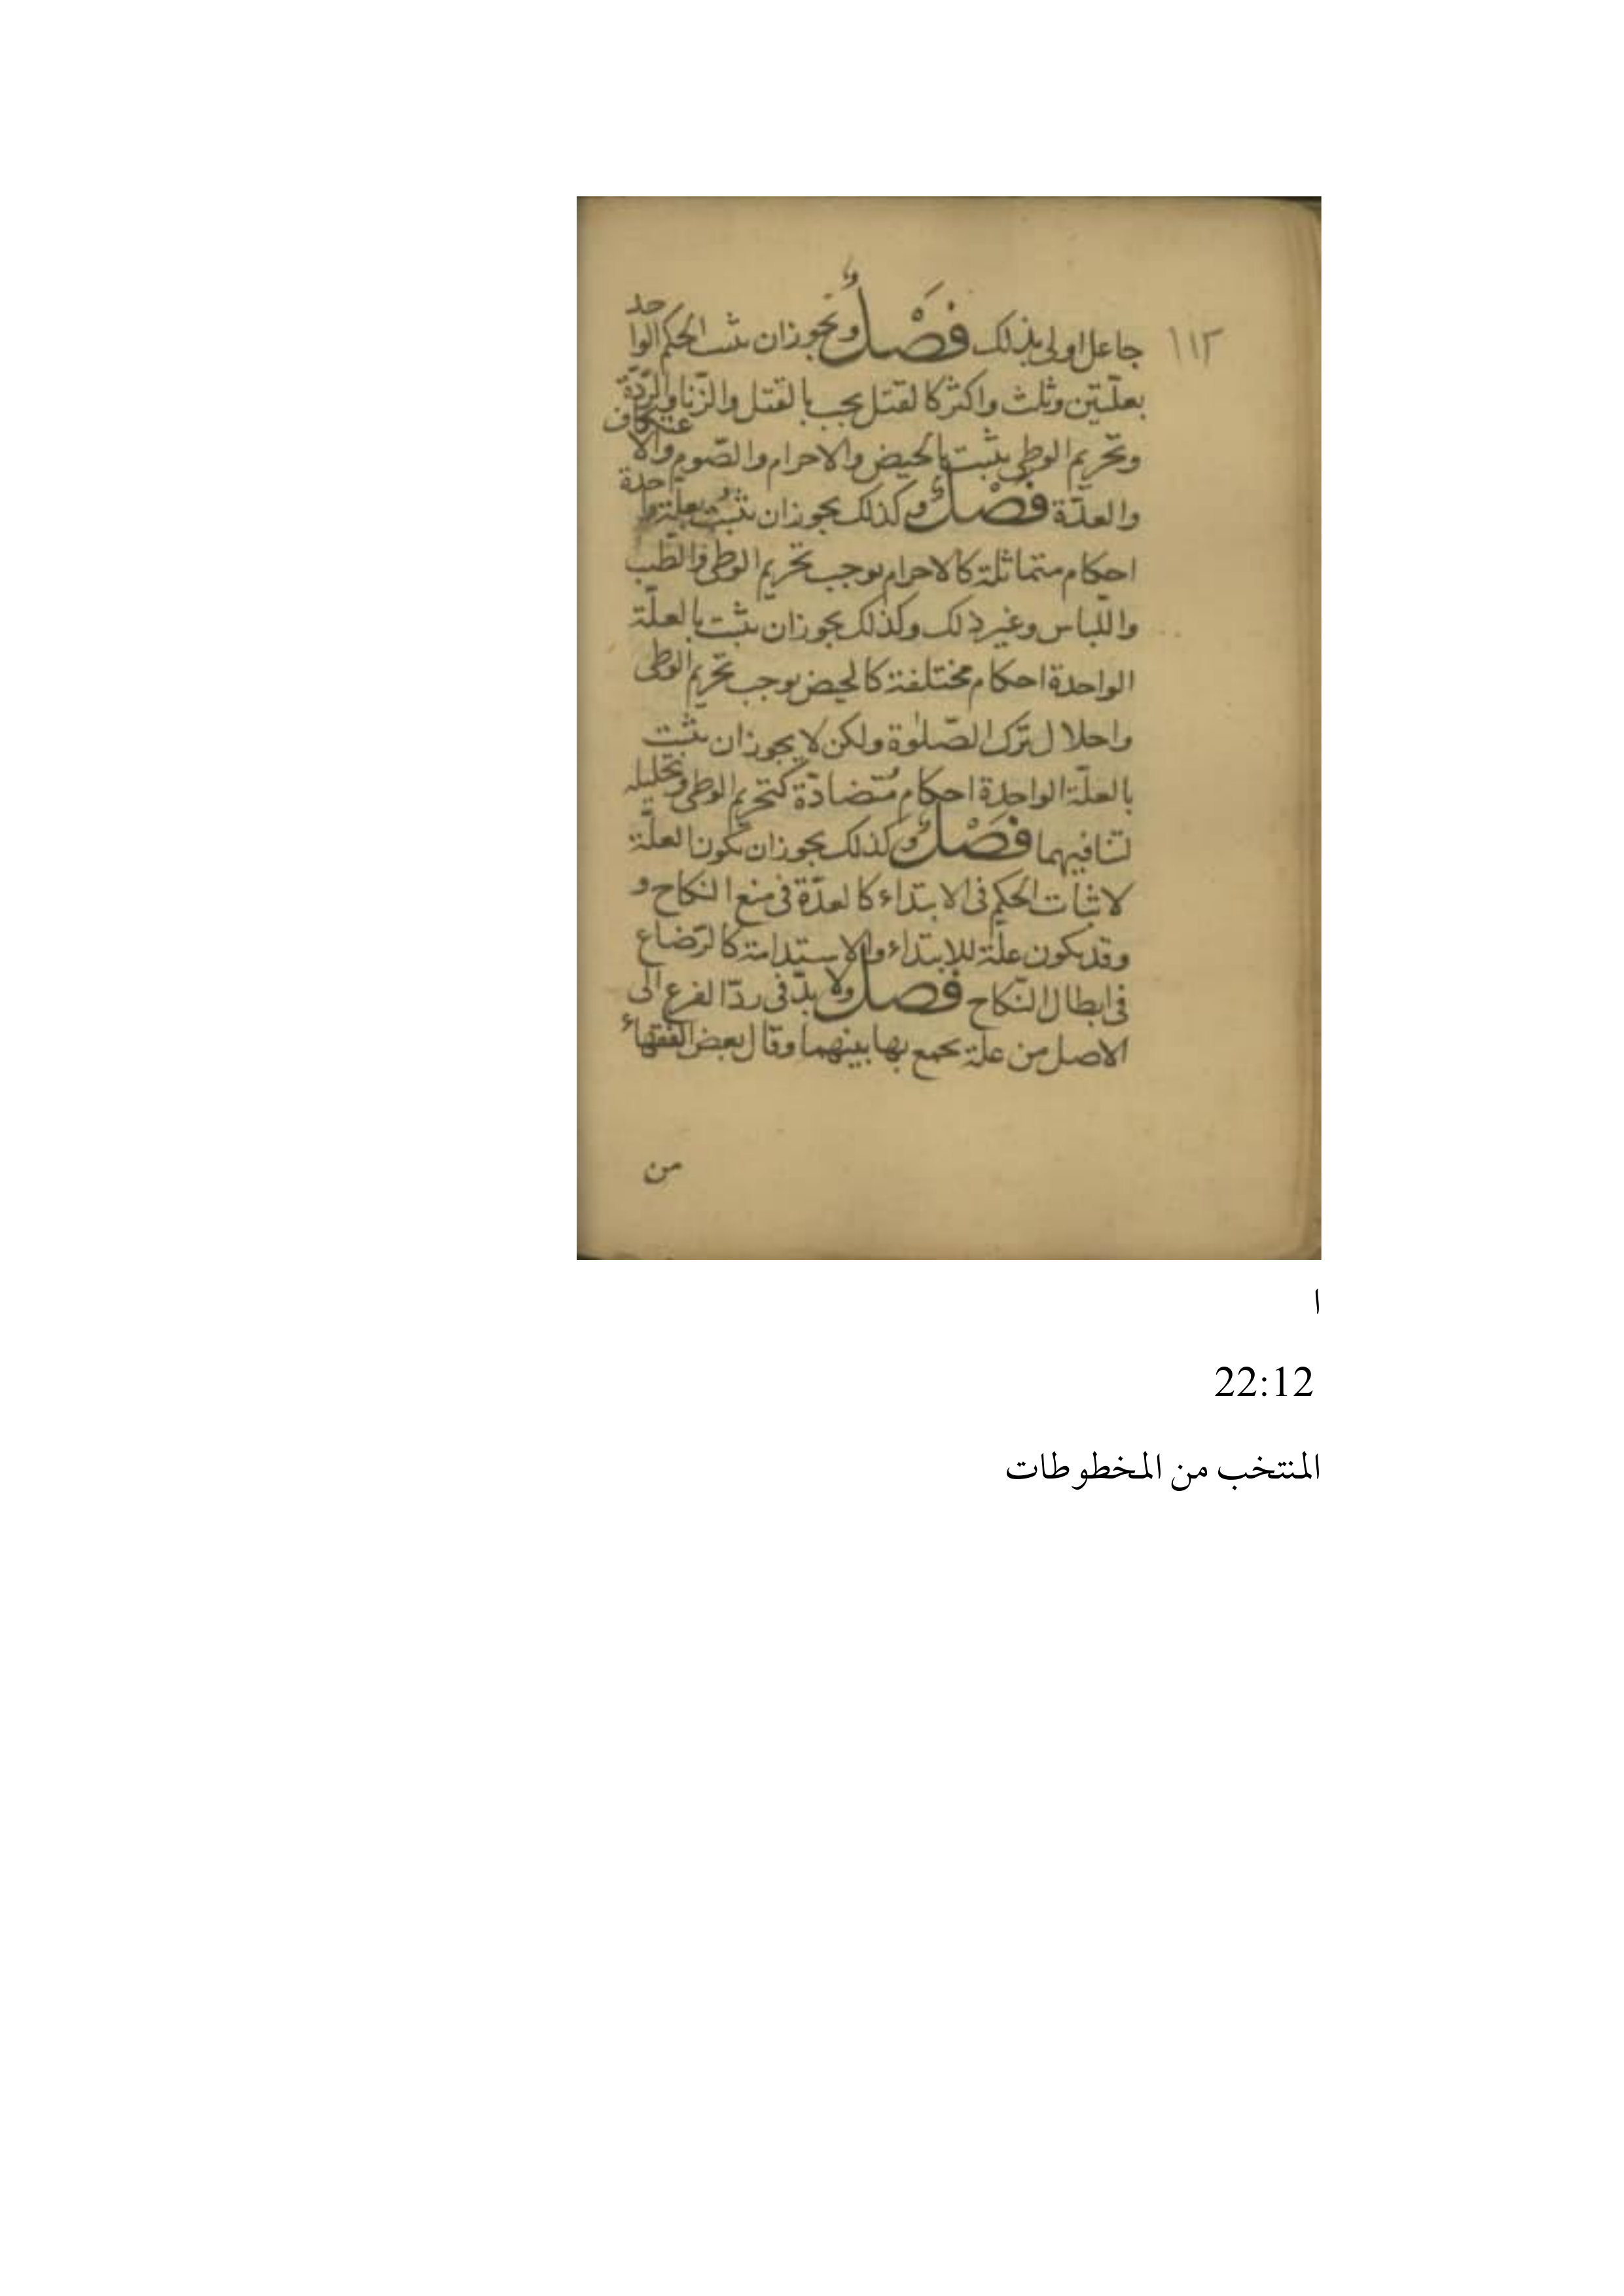 ١١٣
جاعل اولى بذلك فَصْلٌ ويجوز ان يثبت الحكم الواحد
بعلّتين وثلث واكثر كالقتل يجب بالقتل والزّنا والرّدّة
وتحريم الوطى يثبت بالحيض والاحرام والصّوم والاعتكاف
والعدّة فَصْلٌ وكذلك يجوز ان تثبت بعلة واحدة
احكام متماثلة كالاحرام يوجب تحريم الوطى والطّيب
واللّباس وغير ذلك وكذلك يجوز ان يثبت بالعلّة
الواحدة احكام مختلفة كالحيض يوجب تحريم الوطى
واحلال ترك الصّلوة ولكن لا يجوز ان يثبت
بالعلّة الواحدة احكام مُتضادّة كتحريم الوطى وتحليله
لتنافيهما فَصْلٌ وكذلك يجوز ان تكون العلّة
لاثبات الحكم فى الابتداء كالعدّة فى منع النكاح و
وقد يكون علّة للابتداء والاستدامة كالرّضاع
فى ابطال النّكاح فصل ولا بدّ فى ردّ الفرع الى
الاصل من علة يجمع بها بينهما وقال بعض الفقهاء
من
ا
22:12
المنتخب من المخطوطات